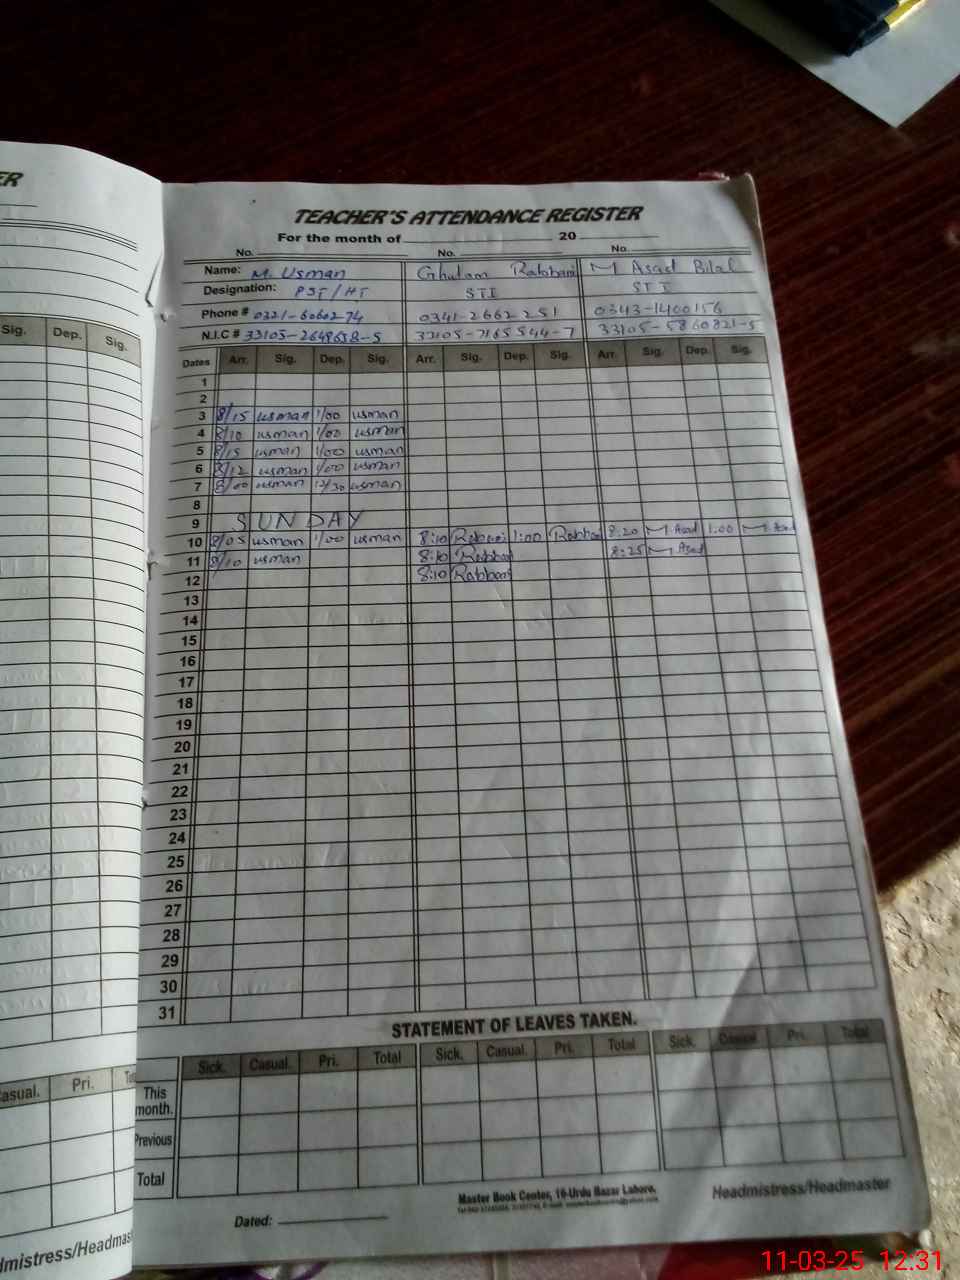 ER
TEACHER'S ATTENDANCE REGISTER
For the month of 20
No. No. No.
Name: M. Usman Ghulam Rabbani M Asad Bilal
Designation: PST/HT STI STI
Phone # 0321-6060274 0341-2662251 0343-1400156
N.I.C # 33105-2649658-5 33105-7165544-7 33105-5860821-5
Sig. Dep. Sig.
Dates Arr. Sig. Dep. Sig. Arr. Sig. Dep. Sig. Arr. Sig. Dep. Sig.
1
2
3 8/15 usman 1/00 usman
4 8/10 usman 1/00 usman
5 8/15 usman 1/00 usman
6 8/12 usman 1/00 usman
7 8/00 usman 12/30 usman
8
9 SUNDAY
10 8/05 usman 1/00 usman 8:10 Rabbani 1:00 Rabbani 8:20 M Asad 1:00 M Asad
11 8/10 usman 8:10 Rabbani 8:25 M Asad
12 8:10 Rabbani
13
14
15
16
17
18
19
20
21
22
23
24
25
26
27
28
29
30
31
STATEMENT OF LEAVES TAKEN.
Sick. Casual. Pri. Total Sick. Casual. Pri. Total Sick. Casual. Pri. Total
asual. Pri.
This month.
Previous
Total
Master Book Center, 16-Urdu Bazar Lahore.
Headmistress/Headmaster
Dated:
dmistress/Headmas
11-03-25 12:31